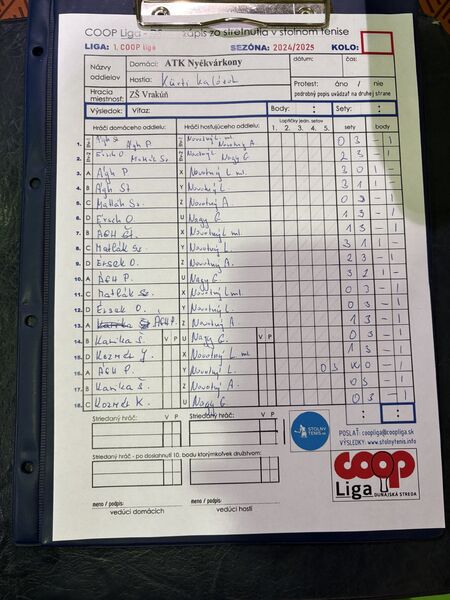 COOP Liga - zápis zo stretnutia v stolnom tenise
LIGA: 1. COOP liga SEZÓNA: 2024/2025 KOLO:
Názvy oddielov Domáci: ATK Nyékvárkony dátum: čas:
Hostia: Kürti
Protest: áno / nie
podrobný popis uvádzať na druhej strane
Hracia miestnosť: ZŠ Vrakúň
Výsledok: Víťaz: Body: : Sety: :
Hráči domáceho oddielu: Hráči hosťujúceho oddielu: Loptičky jedn. setov 1. 2. 3. 4. 5. sety body
1. Agh P. Novotný A. 0 3 - 1
2. Érsek O Matlák Sz. Nagy G. 2 3 - 1
3. A Ágh P X Novotný L. ml. 3 0 1 -
4. B Ágh Št Y Novotný L. 3 1 1 -
5. C Matlák Sz. Z Novotný A 0 3 - 1
6. D Érsek O. U Nagy G. 1 3 - 1
7. B X Novotný L. ml. 1 3 - 1
8. C Matlák Sz. Y Novotný L. 3 1 1 -
9. D Érsek O. Z Novotný A. 2 3 - 1
10. A Ágh P. U Nagy G. 3 2 1 -
11. C Matlák Sz. X Novotný L. ml. 0 3 - 1
12. D Érsek O. Y Novotný L. 0 3 - 1
13. A ÁGH P. Z Novotný A 1 3 - 1
14. B Kanika Š. V P U Nagy G. V P 0 3 - 1
15. D Kozmér X Novotný L. ml. 1 3 - 1
16. A ÁGH P. Y Novotný L. 0 3 - 1
17. B Kanika Š. Z Novotný A. 0 3 - 1
18. C Kozmér K. U Nagy G 0 3 - 1
Striedaný hráč: V P Striedaný hráč: V P
: :
STOLNÝ TENIS
POSLAŤ: coopliga@coopliga.sk
VÝSLEDKY: www.stolnytenis.info
Striedaný hráč - po dosiahnutí 10. bodu ktorýmkoľvek družstvom:
V P V P
coop
Liga
DUNAJSKÁ STREDA
meno / podpis: meno / podpis:
vedúci domácich vedúci hostí